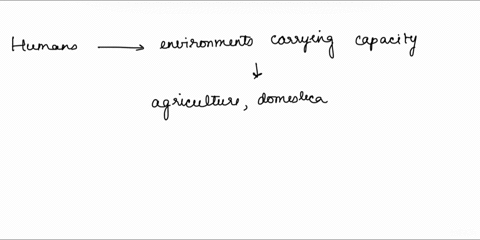 Humans → environments carrying capacity
↓
agriculture, domestica